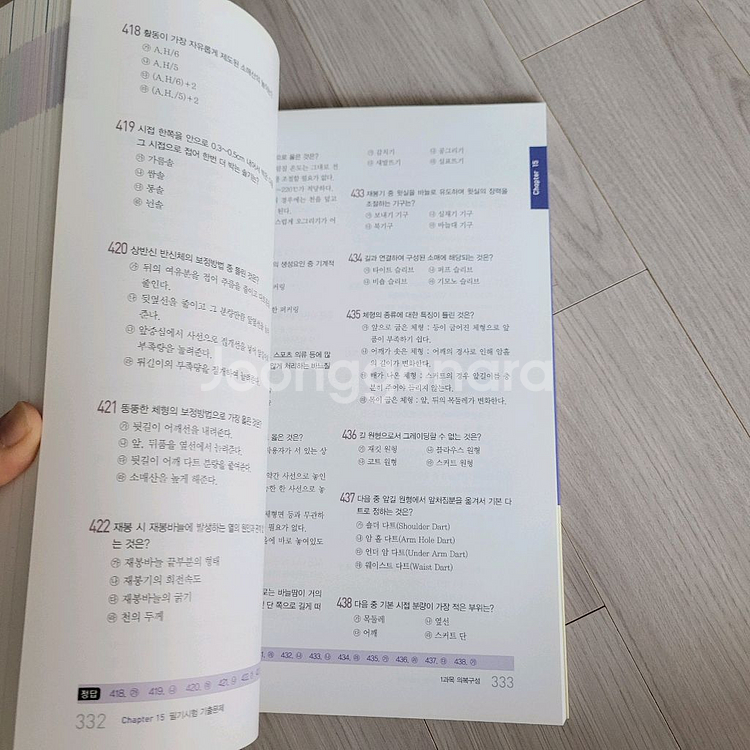 418 활동이 가장 자유롭게 제도된 소매산의
㉮ A.H/6
㉯ A.H/5
㉰ (A.H/6)+2
㉱ (A.H./5)+2
419 시접 한쪽을 안으로 0.3~0.5cm 내어서
그 시접으로 접어 한번 더 박는 솔기는?
㉮ 가름솔
㉯ 쌈솔
㉰ 통솔
㉱ 넌솔
420 상반신 반신체의 보정방법 중 틀린 것은?
㉮ 뒤의 여유분을 접어 주름을 줄이고
줄인다.
㉯ 뒷옆선을 줄이고 그 분량만큼
준다.
㉰ 앞중심에서 사선으로 절개선을 넣어
부족량을 늘려준다.
㉱ 뒤길이의 부족량을 절개하여 늘려준다.
421 뚱뚱한 체형의 보정방법으로 가장 옳은 것은?
㉮ 뒷길이 어깨선을 내려준다.
㉯ 앞, 뒤품을 옆선에서 늘려준다.
㉰ 뒷길이 어깨 다트 분량을 줄여준다.
㉱ 소매산을 높게 해준다.
422 재봉 시 재봉바늘에 발생하는 열의 원인과
는 것은?
㉮ 재봉바늘 끝부분의 형태
㉯ 재봉기의 회전속도
㉰ 재봉바늘의 굵기
㉱ 천의 두께
정답 418. ㉮ 419. ㉯ 420. ㉱ 421. ㉯
332 Chapter 15 필기시험 기출문제
Chapter 15
으로 옳은 것은?
질 온도는 그대로 전
을 조절할 필요가 없다.
~220℃가 적당하다.
경우에는 천을 덮고
된다.
스럽게 오그리기가 어
의 생성요인 중 기계적
커링
한 퍼커링
스포츠 의류 등에 많
않게 처리하는 바느질
옳은 것은?
사용자가 서 있는 상
약간 사선으로 놓인
한 한 사선으로 놓
체형면 등과 무관하
필요가 없다.
음에 바로 놓여있도
로는 바늘땀이 거의
단 쪽으로 길게 떠
㉮ 감치기 ㉯ 공그리기
㉰ 새발뜨기 ㉱ 실표뜨기
433 재봉기 중 윗실을 바늘로 유도하여 윗실의 장력을
조절하는 기구는?
㉮ 보내기 기구 ㉯ 실채기 기구
㉰ 북기구 ㉱ 바늘대 기구
434 길과 연결하여 구성된 소매에 해당되는 것은?
㉮ 타이트 슬리브 ㉯ 퍼프 슬리브
㉰ 비숍 슬리브 ㉱ 기모노 슬리브
435 체형의 종류에 대한 특징이 틀린 것은?
㉮ 앞으로 굽은 체형 : 등이 굽어진 체형으로 앞
품이 부족하기 쉽다.
㉯ 어깨가 솟은 체형 : 어깨의 경사로 인해 암홀
의 길이가 변화한다.
㉰ 배가 나온 체형 : 스커트의 경우 앞길이는 충
분이 주어야 들리지 않는다.
㉱ 목이 굽은 체형 : 앞, 뒤의 목둘레가 변화한다.
436 길 원형으로서 그레이딩할 수 없는 것은?
㉮ 재킷 원형 ㉯ 블라우스 원형
㉰ 코트 원형 ㉱ 스커트 원형
437 다음 중 앞길 원형에서 앞처짐분을 옮겨서 기본 다
트로 정하는 것은?
㉮ 숄더 다트(Shoulder Dart)
㉯ 암 홀 다트(Arm Hole Dart)
㉰ 언더 암 다트(Under Arm Dart)
㉱ 웨이스트 다트(Waist Dart)
438 다음 중 기본 시접 분량이 가장 적은 부위는?
㉮ 목둘레 ㉯ 옆선
㉰ 어깨 ㉱ 스커트 단
432. ㉯ 433. ㉯ 434. ㉱ 435. ㉮ 436. ㉱ 437. ㉰ 438. ㉮
1과목 의복구성 333
Joongonara